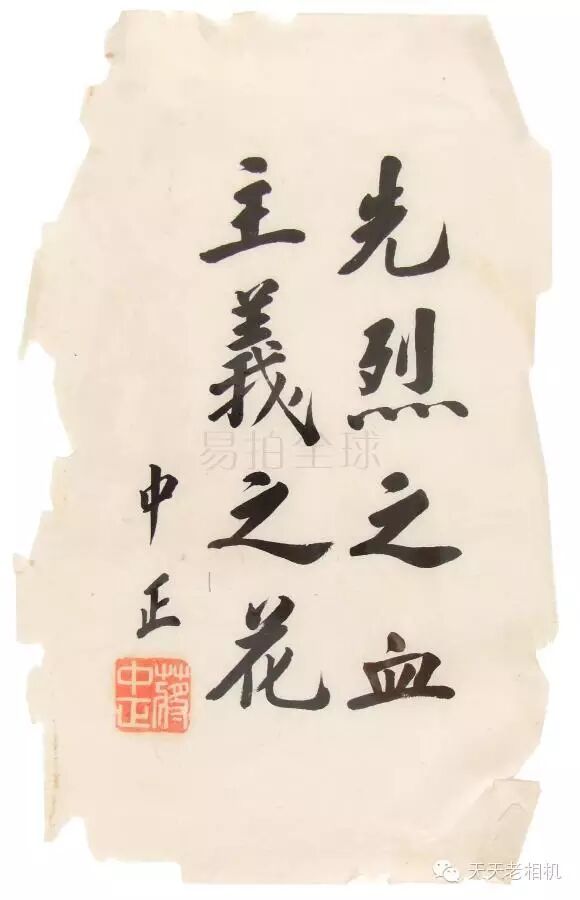 先烈之血
主義之花
中正
蔣中正
易拍全球
天天老相机